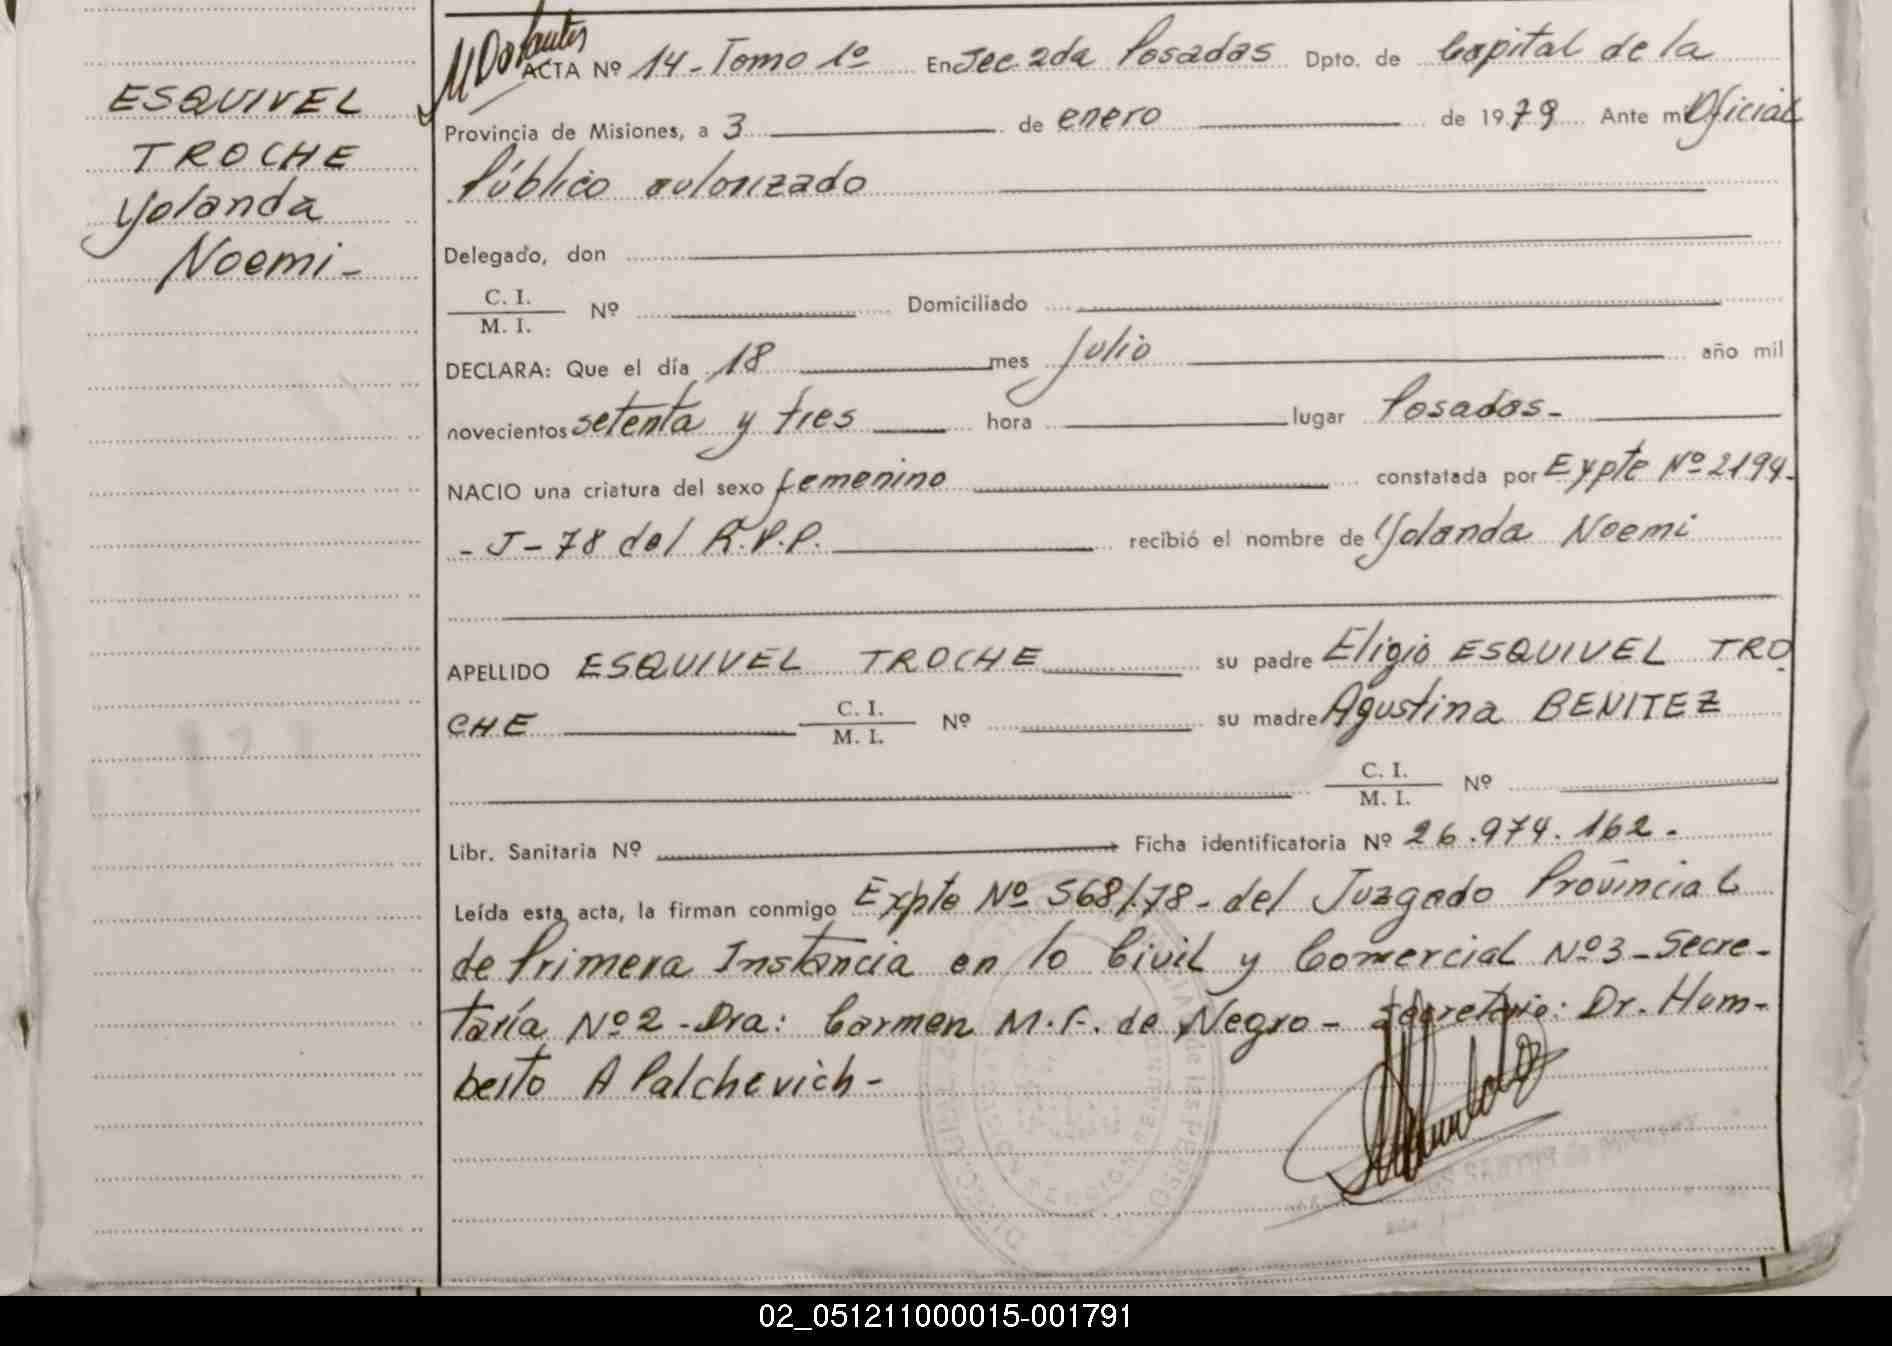 ESQUIVEL
TROCHE
Yolanda
Noemi-
ACTA Nº 14-Tomo 1º En Sec 2da Posadas Dpto. de Capital de la
Provincia de Misiones, a 3 de enero de 1979 Ante mi Oficial
Público autorizado
Delegado, don
C. I.
M. I. Nº Domiciliado
DECLARA: Que el día 18 mes Julio año mil
novecientos setenta y tres hora lugar Posadas-
NACIO una criatura del sexo femenino constatada por Expte Nº 2194-
-J-78 del R.P.P. recibió el nombre de Yolanda Noemi
APELLIDO ESQUIVEL TROCHE su padre Eligio ESQUIVEL TRO
CHE C. I. M. I. Nº su madre Agustina BENITEZ
C. I. M. I. Nº
Libr. Sanitaria Nº Ficha identificatoria Nº 26.974.162.
Leída esta acta, la firman conmigo Expte Nº 568/78- del Juzgado Provincial
de Primera Instancia en lo Civil y Comercial Nº 3-Secre-
taría Nº 2 -Dra: Carmen M.F. de Negro- Secretario: Dr. Hum-
berto A Palchevich-
02_051211000015-001791